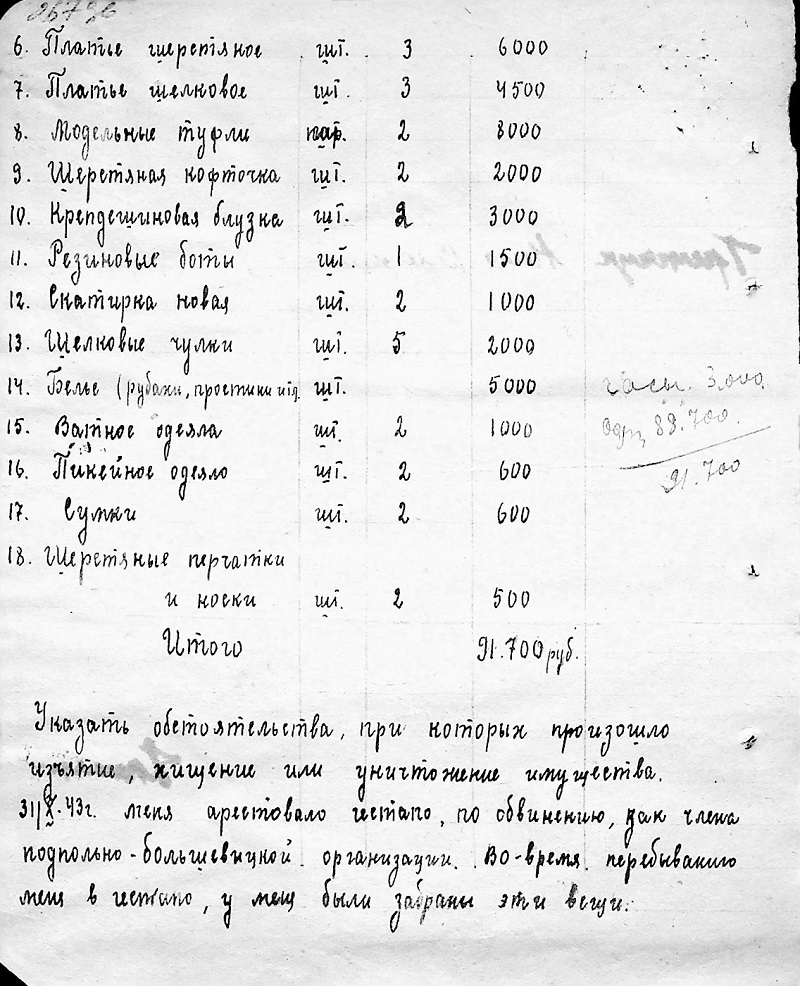 6. Платье шерстяное шт. 3 6000
7. Платье шелковое шт. 3 4500
8. Модельные туфли пар. 2 8000
9. Шерстяная кофточка шт. 2 2000
10. Крепдешиновая блузка шт. 2 3000
11. Резиновые боты шт. 1 1500
12. Скатирка новая шт. 2 1000
13. Шелковые чулки шт. 5 2000
14. Белье (рубахи, простини итд. шт. 5000
часы. 3.000
15. Ватное одеяла шт. 2 1000
88.700.
16. Пикейное одеяло шт. 2 600
91.700
17. Сумки шт. 2 600
18. Шерстяные перчатки
и носки шт. 2 500
Итого 91.700 руб.
Указать обстоятельства, при которых произошло
изъятие, хищение или уничтожение имущества.
31/X-43г. меня арестовало гестапо, по обвинению, как члена
подпольно-большевицкой организации. Во-время перебыванию
меня в гестапо, у меня были забраны эти вещи.